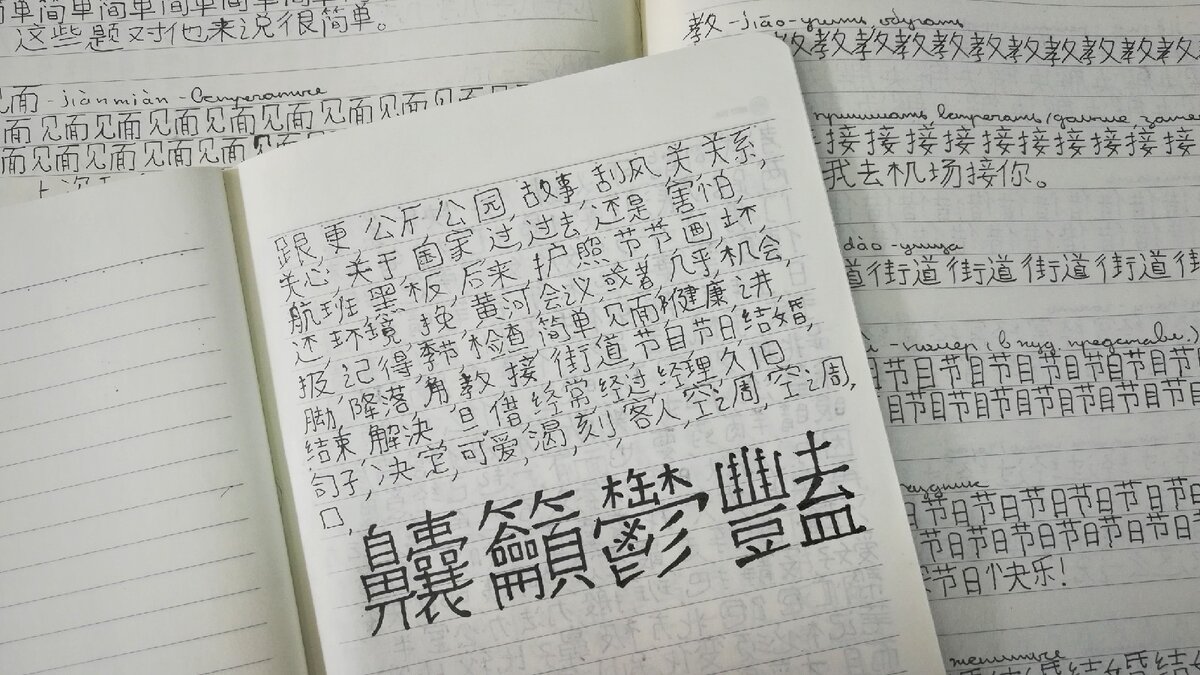 单简单简单简单简单简单
这些题对他来说很简单。
见面 - jiànmiàn - встречаться
面见面见面见面见面见面见面
面见面见面见面
跟,更,公斤,公园,故事,刮风,关,关系,
关心,关于,国家,过,过去,还是,害怕,
航班,黑板,后来,护照,节节,画,坏,
还,环境,挽,黄河,会议,或者,几乎,机会,
极,记得,季节,检查,简单,见面,健康,讲,
脚,降落,角,教,接,街道,节目,节日,结婚,
结束,解决,日,借,经常,经过,经理,久,旧
句子,决定,可爱,渴,刻,客人,空周,空周,
口,
齉籲鬱豔
教 - jiāo - учить, обучать
教教教教教教教教
принимать, встречать
接接接接接接接
我去机场接你。
dào - улица
道街道街道街道街道街道
номер, (в худ. представл.)
目节目节目节目节目节目节目
目节目节目节目节目节目节目
праздник
节日节日节日节日节日节日
节日节日节日节日节日节日
节日个快乐!
жениться